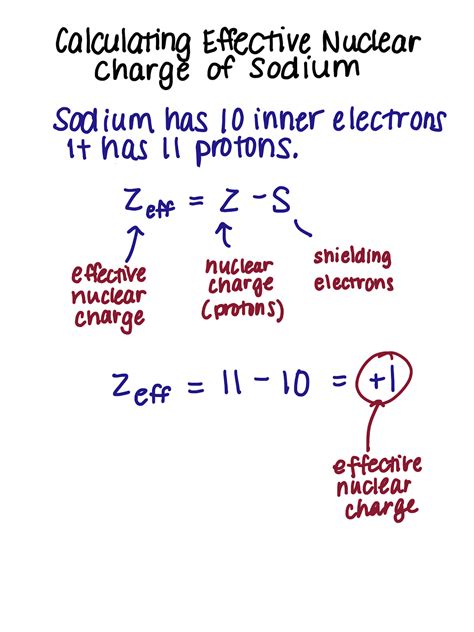 Calculating Effective Nuclear
Charge of Sodium
Sodium has 10 inner electrons
It has 11 protons.
Zeff = Z - S
effective
nuclear
charge
nuclear
charge
(protons)
shielding
electrons
Zeff = 11 - 10 = +1
effective
nuclear
charge